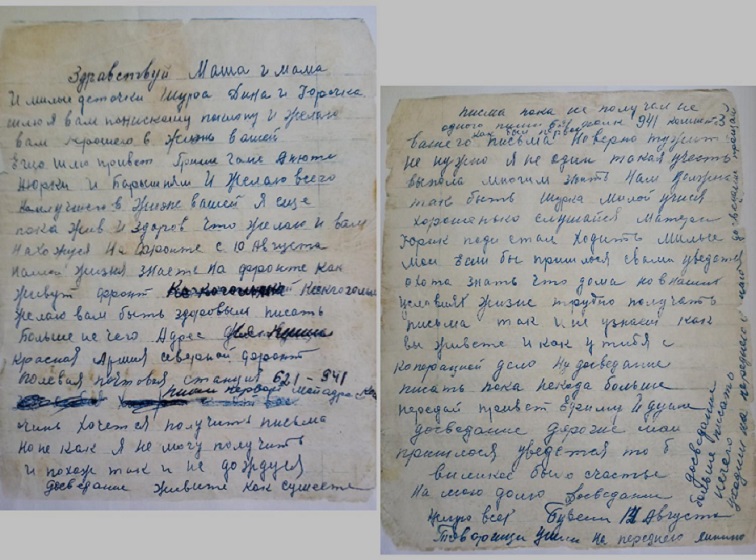 Здравствуй Маша и мама
И милые деточки Шура Дина и Горочка
шлю я вам понискому поклону и желаю
вам хорошего в жизни вашей
Еще шлю привет Грише Гале Анюте
Нюрки И Барышням И желаю всего
наилучшего в жизне вашей Я еще
пока жив И Здоров что желаю и вам
Нахожуся На фронте с 10 Августа
нашой жизня знаете На фронте как
живут фронт
желаю вам быть здоровым писать
больше не чего Адрес
Красная Армия северной фронт
полевая почтовая станция 621 – 941
хочется получить письма
но не как я не могу получить
и похож так и не дождуся
досведание живите как сумеете
письма пока не получал не
одного 621 941
вашего письма Наверно тужить
не нужно Я не один такая участь
выпала многим знать Нам
так быть Шурка милой учися
хорошенько слушайся Матери
Горик поди стал ходить Милые
мои Если бы пришлося свами уведется
охота знать что дома но внаших
условиях жизне трудно получать
письма так и не узнаем как
вы живете и как у тибя с
коперацией дело Но досведание
писать пока некода больше
передай привет Ефиму И дуни
досведание дорогие мои
пришлося уведется то б
великое было счастье
На мою долю Досведании
Целую всех 14 Августа
Товарищи ушли на переднею линию
досведании
больше писать
нечего